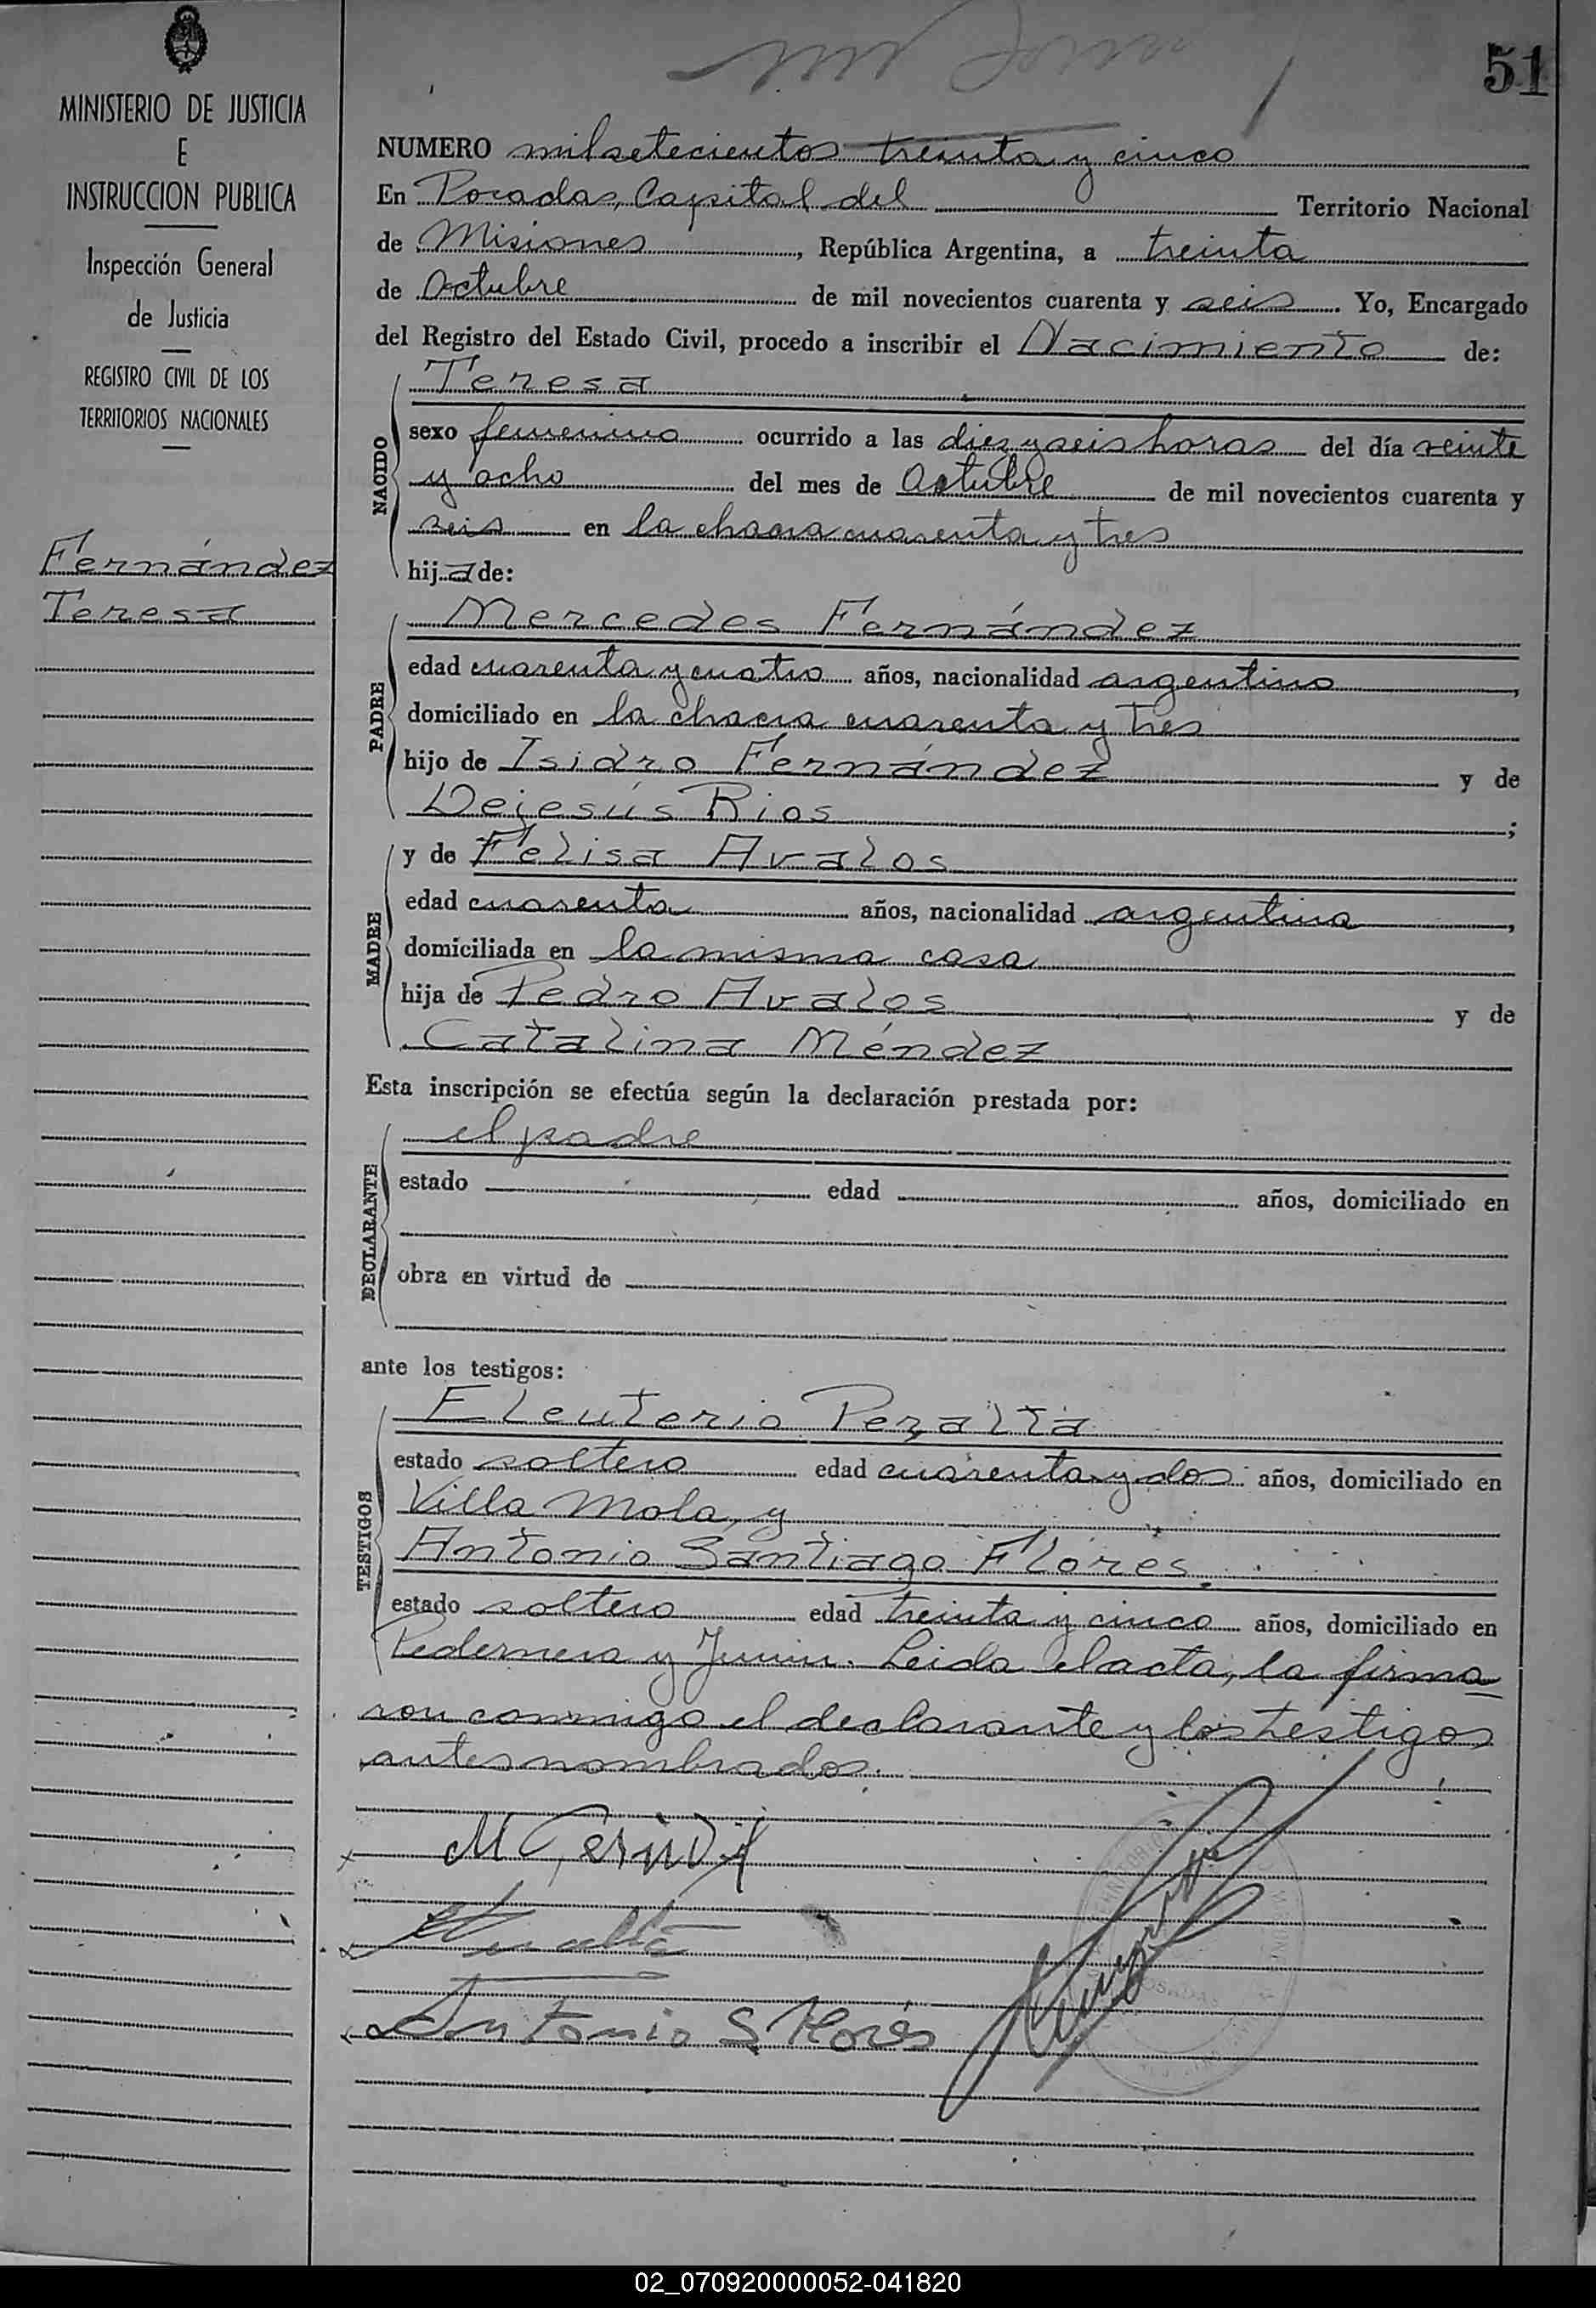 51
MINISTERIO DE JUSTICIA
E
INSTRUCCION PUBLICA
Inspección General
de Justicia
REGISTRO CIVIL DE LOS
TERRITORIOS NACIONALES
Fernández
Teresa
NUMERO mil setecientos treinta y cinco
En Posadas, Capital del Territorio Nacional
de Misiones, República Argentina, a treinta
de Octubre de mil novecientos cuarenta y seis. Yo, Encargado
del Registro del Estado Civil, procedo a inscribir el Nacimiento de:
NACIDO
Teresa
sexo femenino ocurrido a las diez y seis horas del día veinte
y ocho del mes de Octubre de mil novecientos cuarenta y
seis en la chacra cuarenta y tres
hija de:
PADRE
Mercedes Fernández
edad cuarenta y cuatro años, nacionalidad argentino,
domiciliado en la chacra cuarenta y tres
hijo de Isidro Fernández y de
Dejesús Rios;
MADRE
y de Felisa Avalos
edad cuarenta años, nacionalidad argentina,
domiciliada en la misma casa
hija de Pedro Avalos y de
Catalina Méndez
Esta inscripción se efectúa según la declaración prestada por:
DECLARANTE
el padre
estado edad años, domiciliado en
obra en virtud de
ante los testigos:
TESTIGOS
Eleuterio Peralta
estado soltero edad cuarenta y dos años, domiciliado en
Villa Mola, y
Antonio Santiago Flores.
estado soltero edad treinta y cinco años, domiciliado en
Pedernera y Junin. Leida el acta, la firma
ron conmigo el declarante y los testigos
antes nombrados.
Antonio S. Flores
POSADAS
02_070920000052-041820